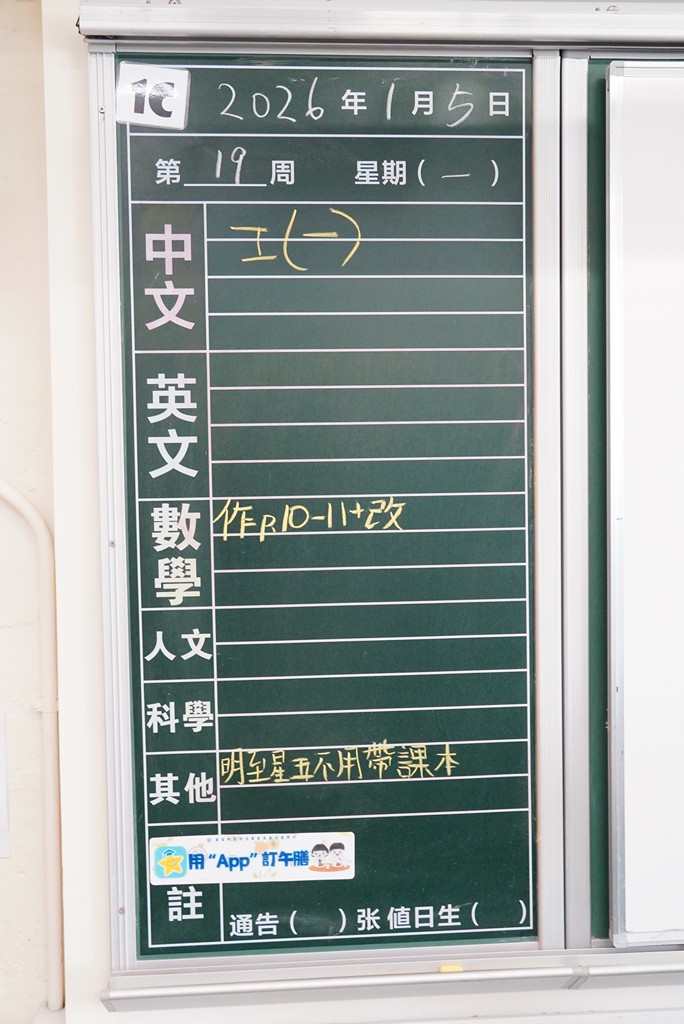 1C
2026年1月5日
第19周 星期(一)
中文 工(一)
英文
數學 作p.10-11+改
人文
科學
其他 明至星五不用帶課本
用“App”訂午膳
註
通告( )张 值日生( )